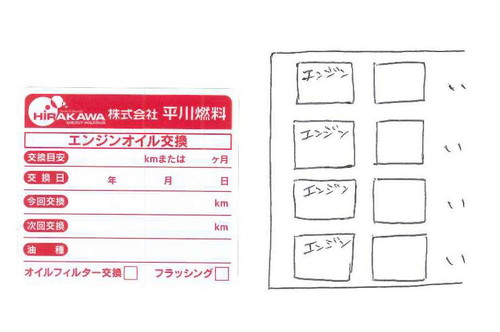 HIRAKAWA 株式会社 平川燃料
エンジンオイル交換
交換目安 kmまたは ヶ月
交換日 年 月 日
今回交換 km
次回交換 km
油種
オイルフィルター交換 フラッシング
エンジン
エンジン
エンジン
エンジン